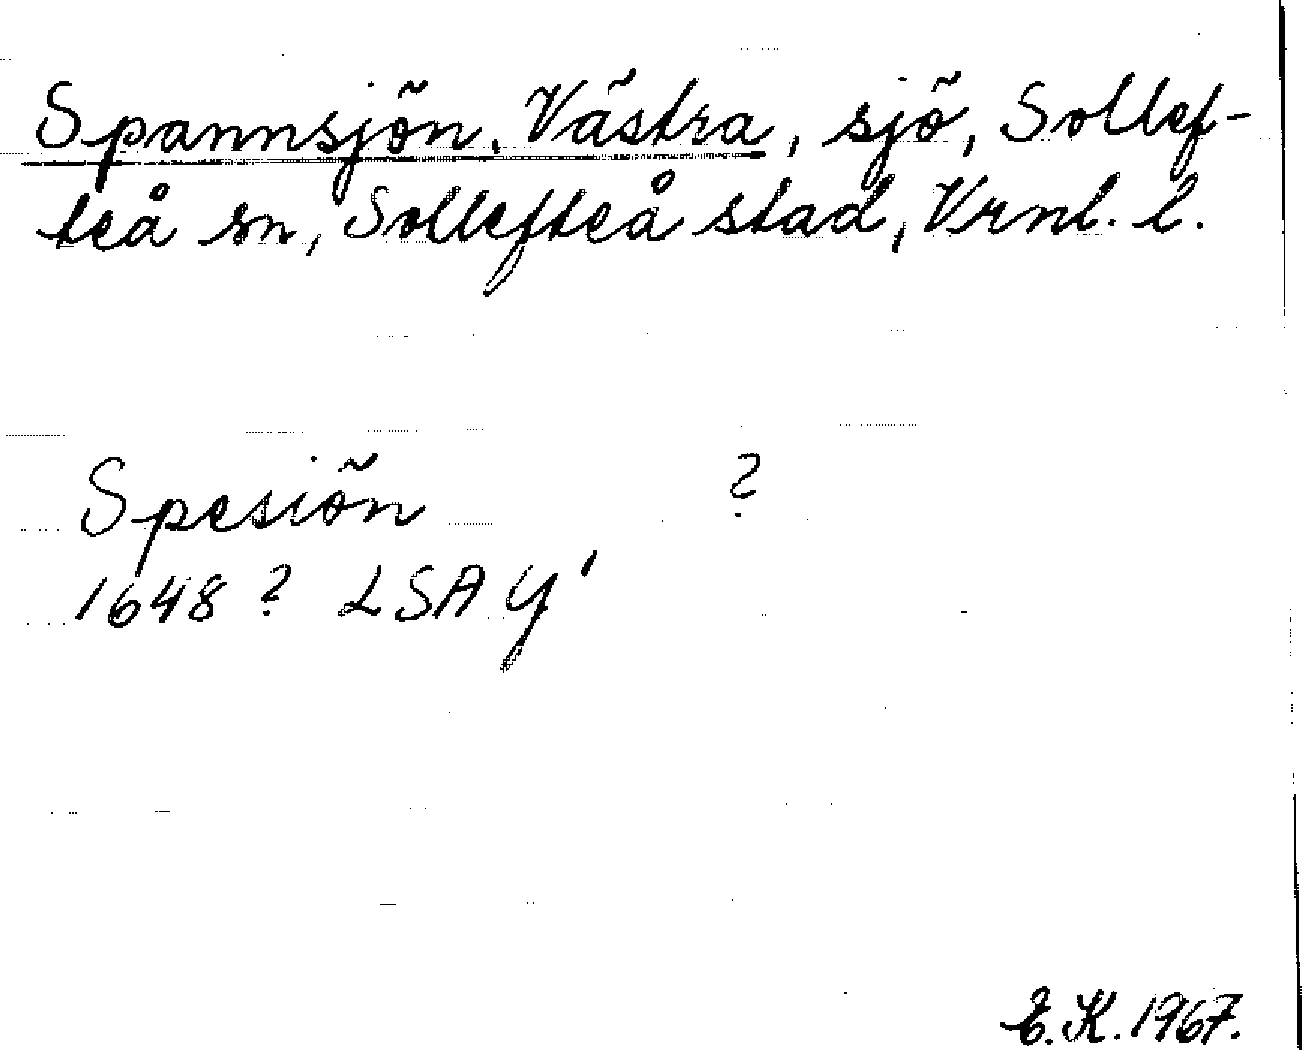 Spannsjön, Västra, sjö, Sollef-
teå sn, Sollefteå stad, Vrnl. l.
Spesiön ?
1648 ? LSA Y'
E.K. 1967.